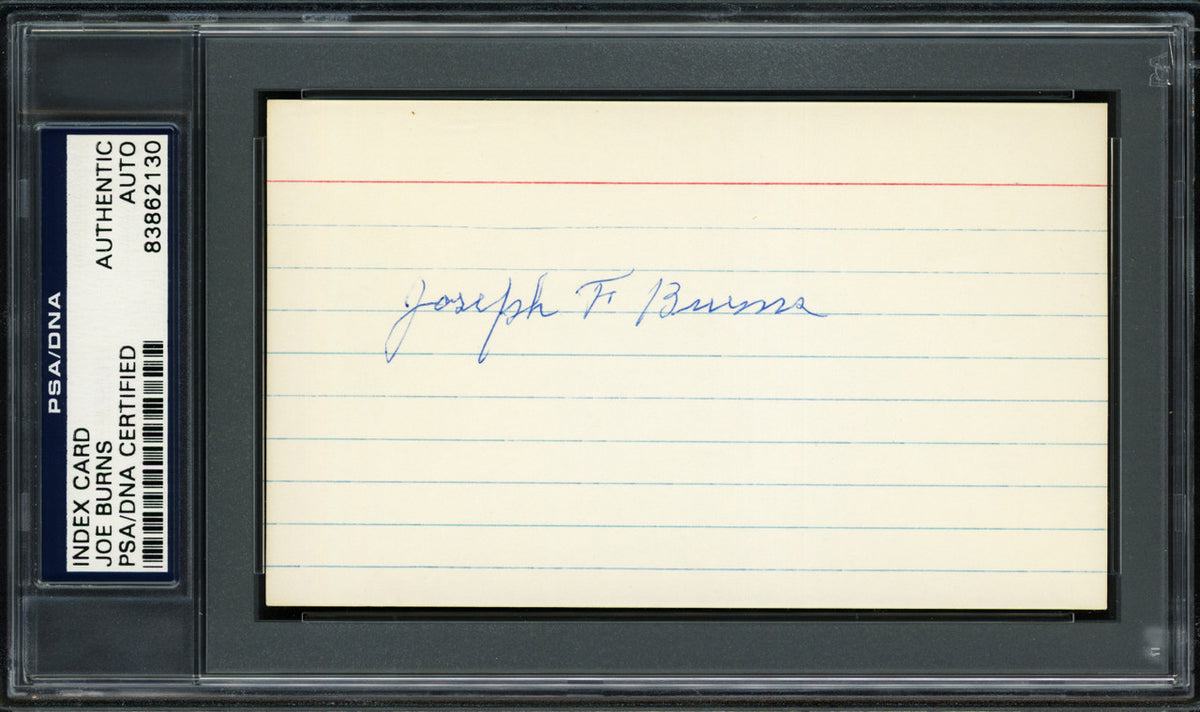 PSA/DNA
INDEX CARD
JOE BURNS
PSA/DNA CERTIFIED
AUTHENTIC
AUTO
83862130
Joseph F Burns